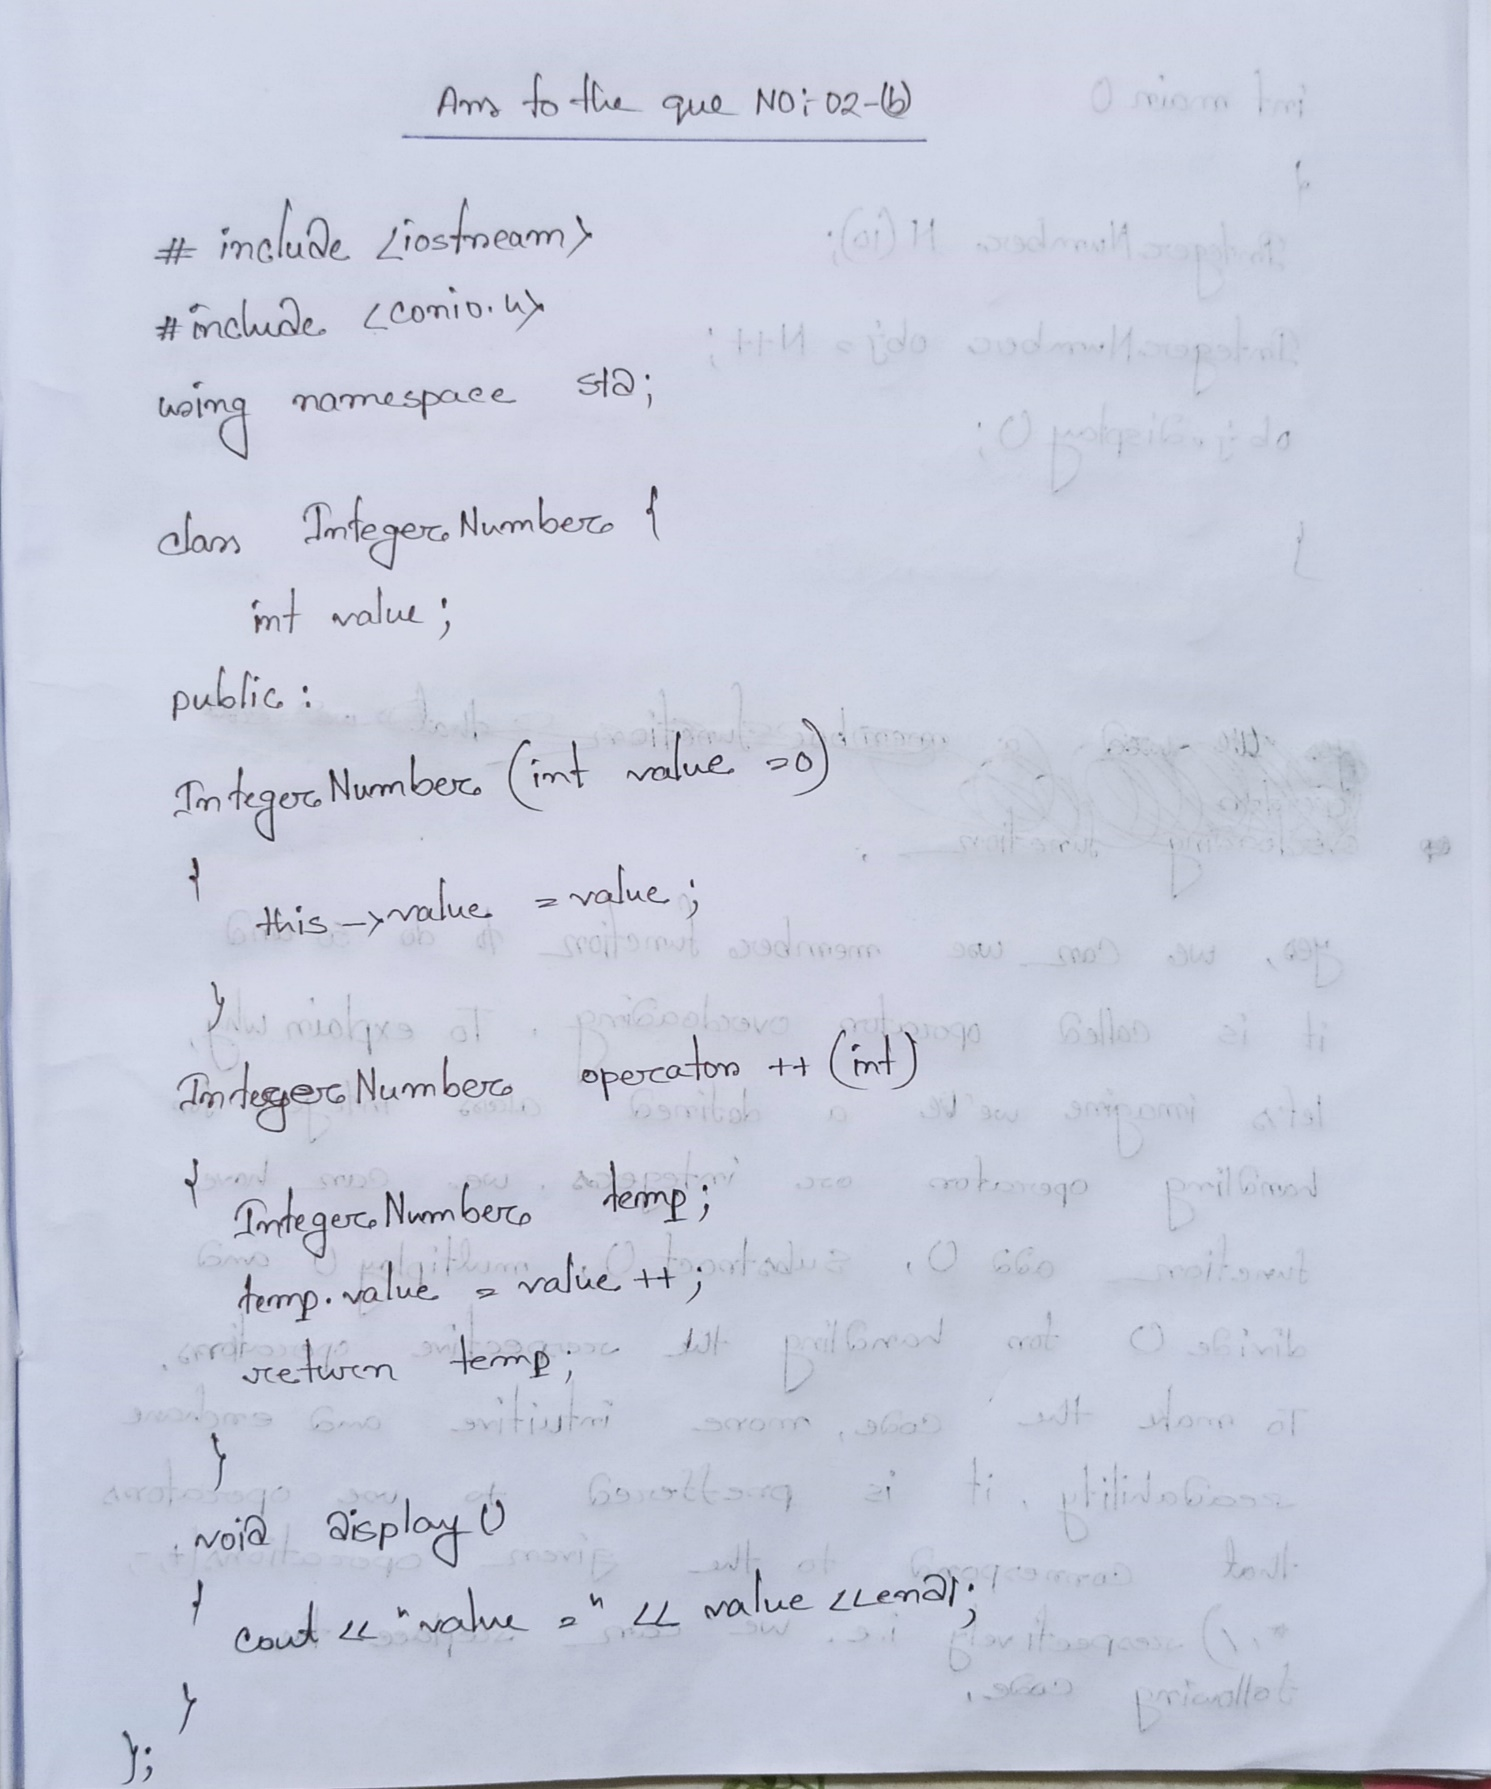 Ans to the que NO: 02-(b)
# include <iostream>
#include <conio.h>
using namespace std;
class IntegerNumber {
int value;
public:
IntegerNumber (int value =0)
{
this->value = value;
}
IntegerNumber operator ++ (int)
{
IntegerNumber temp;
temp.value = value ++;
return temp;
}
void display ()
{
cout << "value =" << value <<endl;
}
};